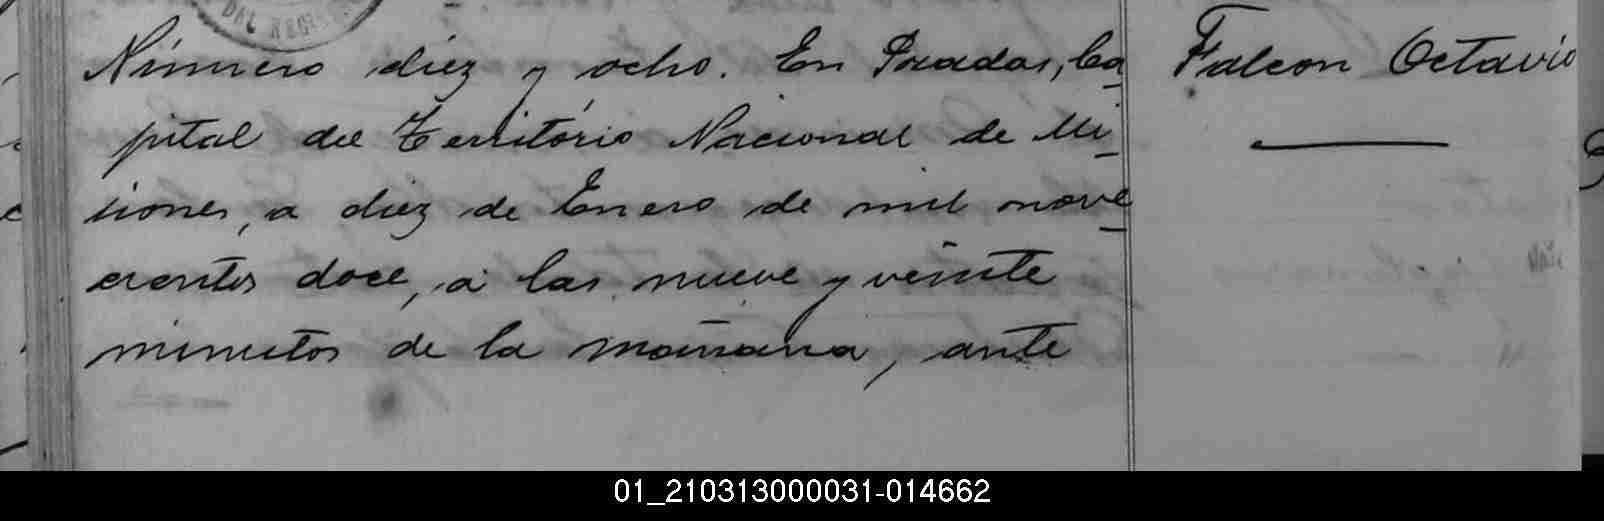 DAL REGI
Número diez y ocho. En Posadas, Ca
pital del Territorio Nacional de Mi
siones, a diez de Enero de mil nove
cientos doce, á las nueve y veinte
minutos de la mañana, ante
Falcon Octavio
01_210313000031-014662